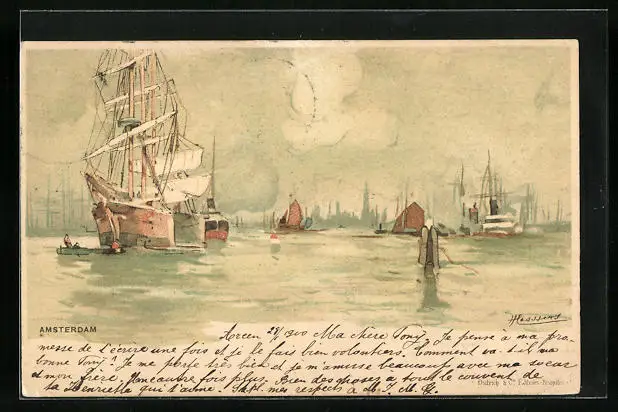 AMSTERDAM
HCassiers
28/ 1900 Ma chère Tony, Je pense à ma pro-
messe de t'écrire une fois et je le fais bien volontiers. Comment va-t-il ma
bonne Tony? Je me porte très bien et je m'amuse beaucoup avec ma sœur
et mon frère encore fois plus. Bien des choses à tout le couvent de
ta Henriette qui t'aime. mes respects à
Dietrich & Cº Editeurs Bruxelles